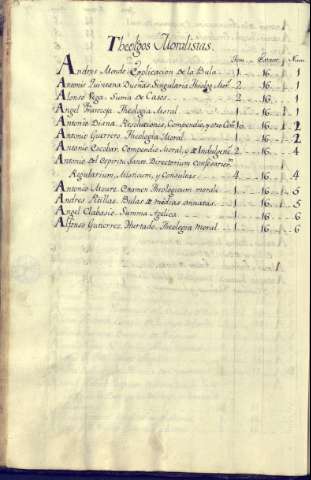 Theologos Moralistas.
Tom. Estant. Num
Andres Mendo Explicacion de la Bula 1 16 1
Antonio Dueñas Singularia Theolog. Mor. 2 16 1
Alonso Vega Suma de Casos 2 16 1
Angel Theologia Moral 1 16 2
Antonio Diana Resoluciones, Compendio, y otro 10 16 2
Antonio Guerrero Theologia Moral 1 16 2
Antonio Escobar Compendio Moral, y de Indulgen. 2 16 4
Antonio del Espiritu Santo Directorium Confesarior.
Regularium, Misarum, y Consultas 4 16 4
Antonio Examen Theologicum morale 1 16 5
Andres Bulas de medias annatas 1 16 5
Angel Clabasio Summa Agelica 1 16 6
Alfonso Gutierrez Hurtado, Theologia Moral 1 16 6